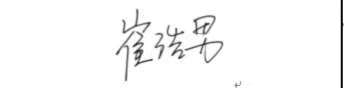 崔浩男